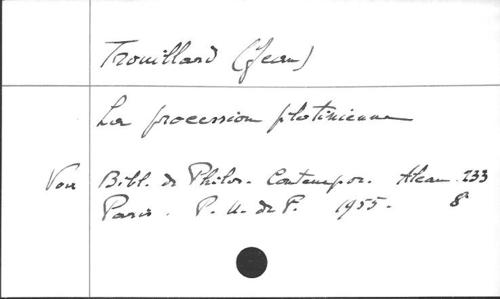 Trouillard (Jean)
La procession plotinienne
Voir Bibl. de Philos. Contempor. Alcan. 233
Paris. P. U. de F. 1955. 8°